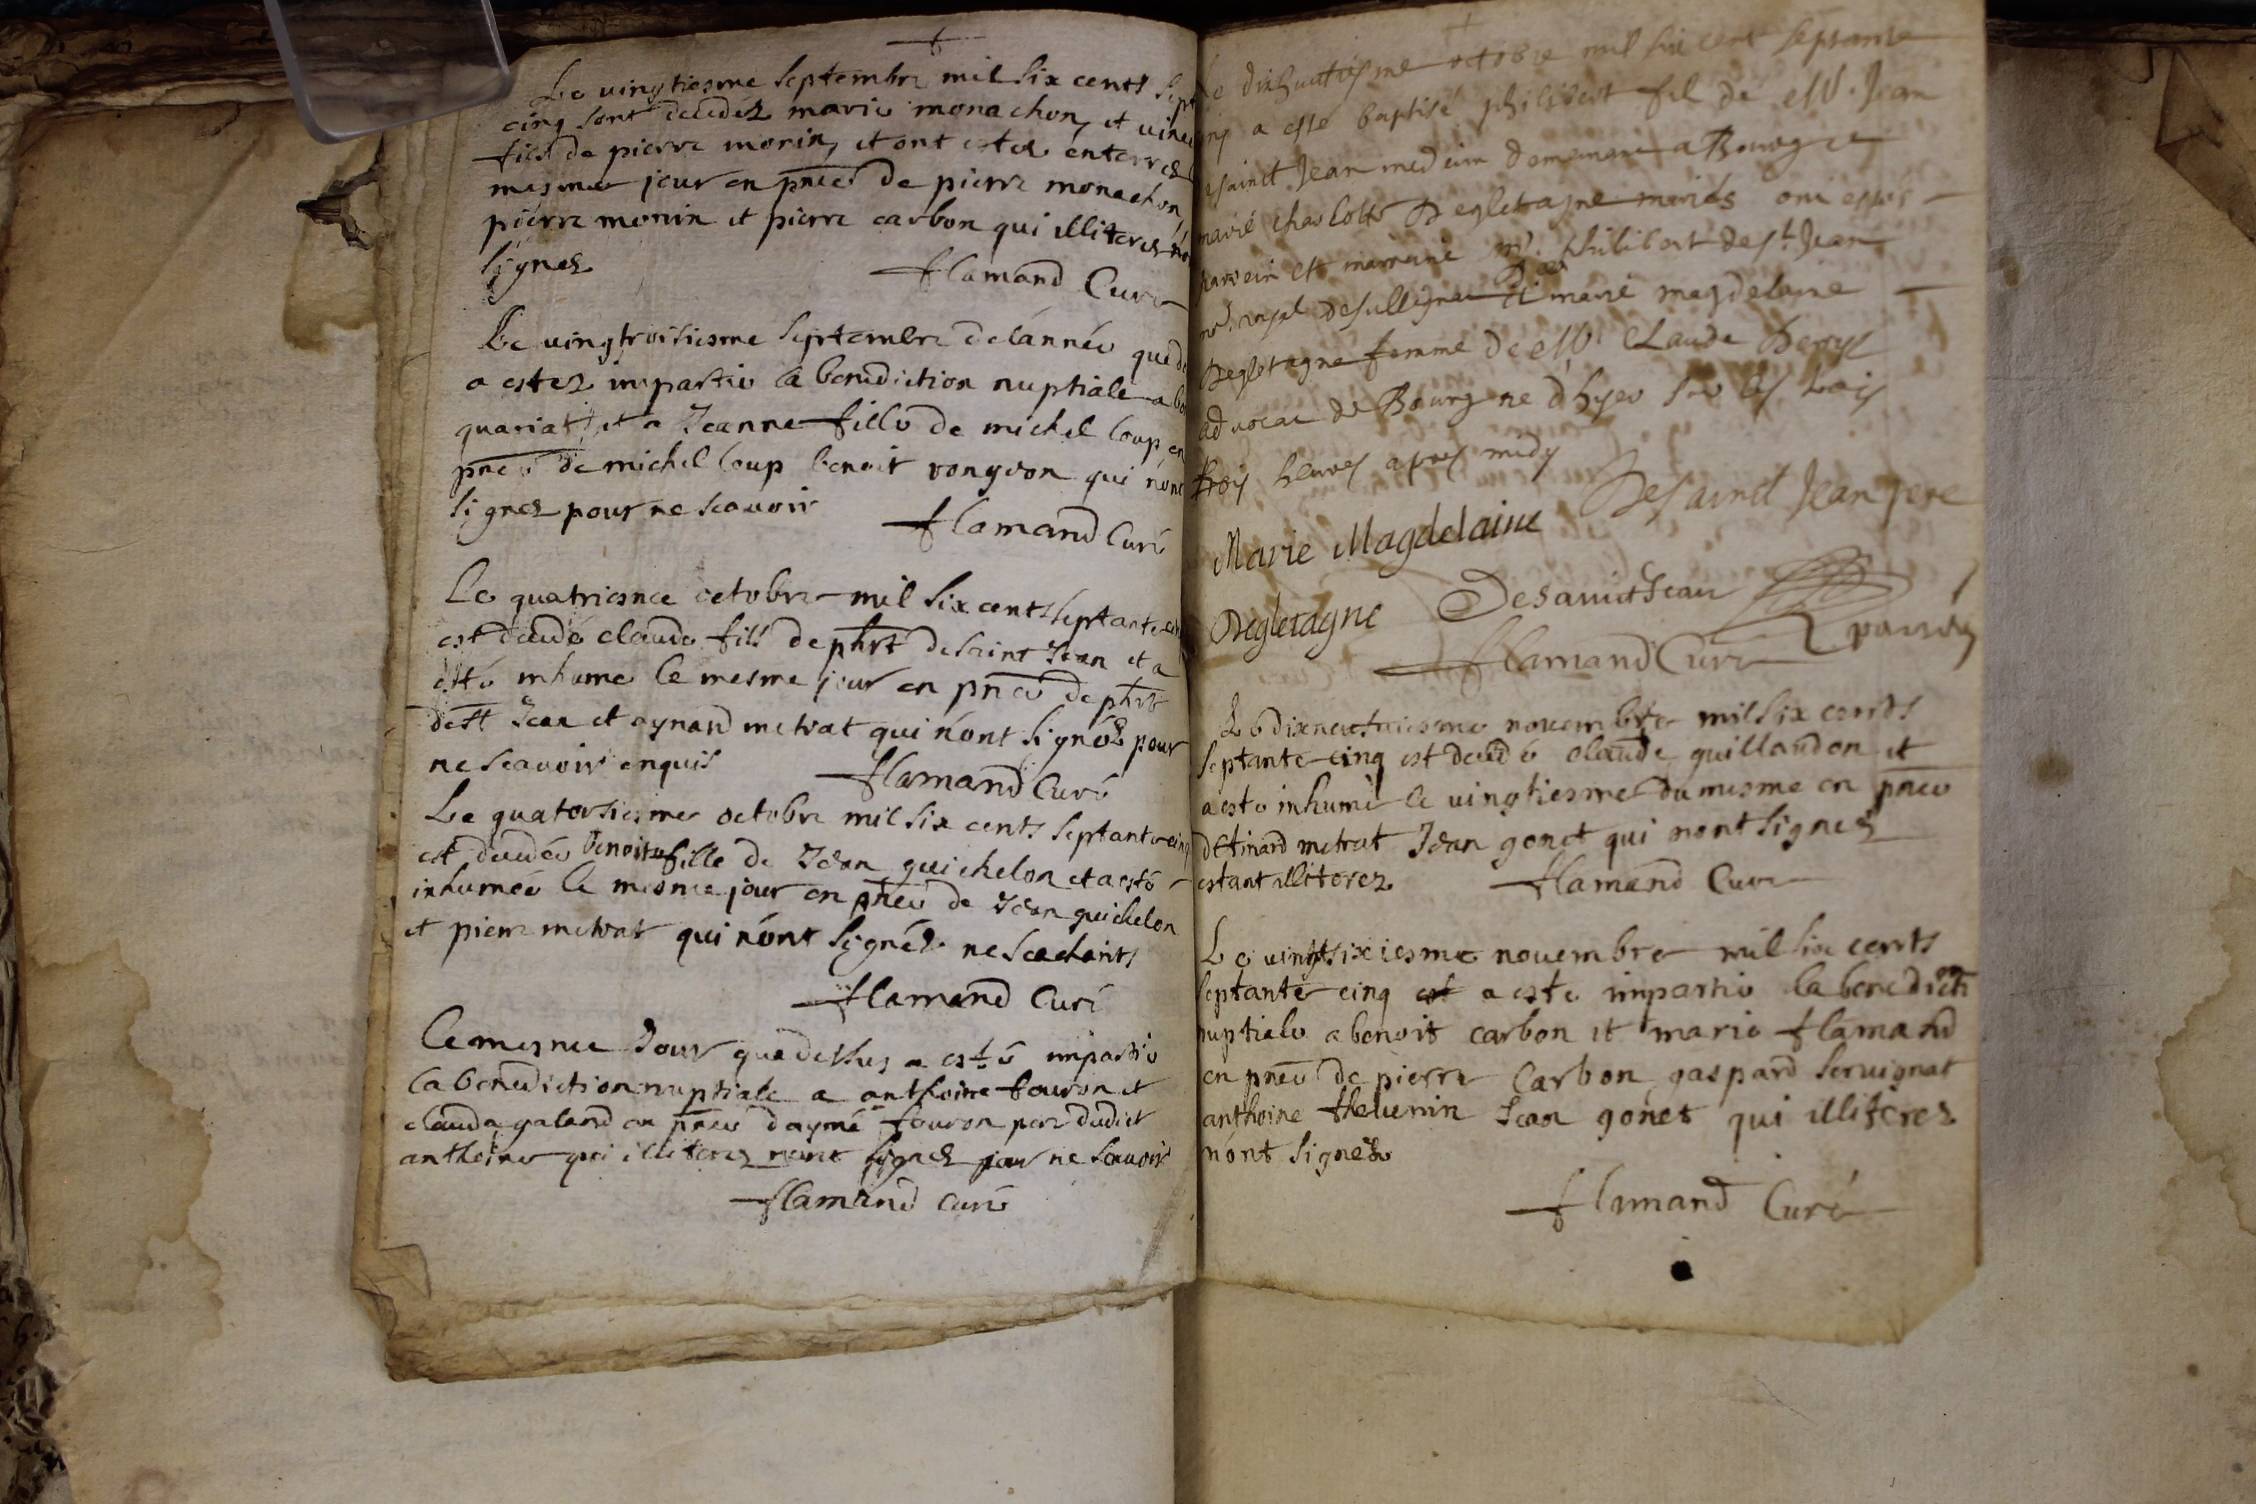 Le vingtiesme septembre mil six cents sept
cinq sont decedez marie monachon, et
fils de pierre monin, et ont estez enterrez
mesme jour en pnce de pierre monachon
pierre monin et pierre carbon qui illiterez
signez
flamand Curé
Le vingtroisiesme septembre de lannée que
a estez impartie la benediction nuptiale a
quariat, et a Jeanne fille de michel loup en
pnce de michel loup benoit qui nont
signez pour ne scavoir
flamand Curé
Le quatriesme octobre mil six cents septante
est decedé claude fils de phrt de saint Jean et a
esté inhume le mesme jour en pnce de phrt
de st Jean et aynard metrat qui nont signéz pour
ne scavoir enquis
flamand Curé
Le quatorsiesme octobre mil six cents septante cinq
est decedée benoite fille de Jean guichelon et a esté
inhumée le mesme jour en pnce de Jean guichelon
et pierre metrat qui nont signéz ne scachants
flamand Curé
Le mesme Jour que dessus a esté impartie
la benediction nuptiale a anthoine fouron et
clauda galand en pnce daymé fouron pere dudict
anthoine qui illiterez nont signez pour ne scavoir
flamand curé
Le dixhuictiesme octobre mil six cent septante
a esté baptisé philibert fil de Jean
sainct Jean medecin demeurant a Bourg et
marie charlotte Degletagne mariés
parrein et marreine philibert de st Jean
et marie magdelaine
Degletagne femme de claude
advocat de Bourg ne dhyer sur les trois
trois heures apres midy
De sainct Jean pere
Marie Magdelaine
Desainct Jean
Degletagne
parrein
flamand Curé
Le dixneufviesme novembre mil six cents
septante cinq est decedé claude guillandon et
a esté inhumé le vingtiesme du mesme en pnce
detinard metrat Jean gonet qui nont signez
estant illiterez
flamand Curé
Le vingtsixiesme novembre mil six cents
septante cinq a esté impartie la benediction
nuptiale a benoit carbon et marie flamand
en pnce de pierre Carbon gaspard servignat
anthoine thevenin Jean gonet qui illiterez
nont signez
flamand Curé